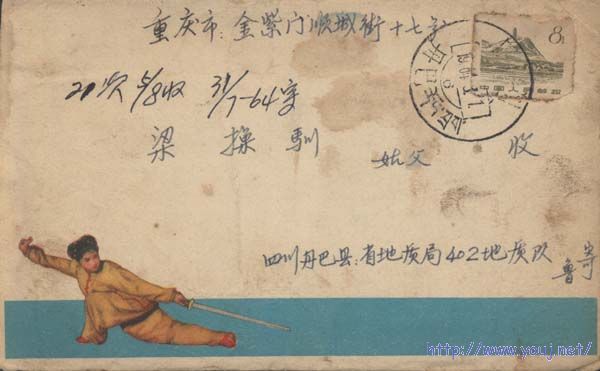 重庆市:金紫门顺城街十七号
8
20次 5/8收 31/7-64寄
梁操驯 姑父 收
四川丹巴县:省地质局402地质队
鲁寄
http://www.youj.net/